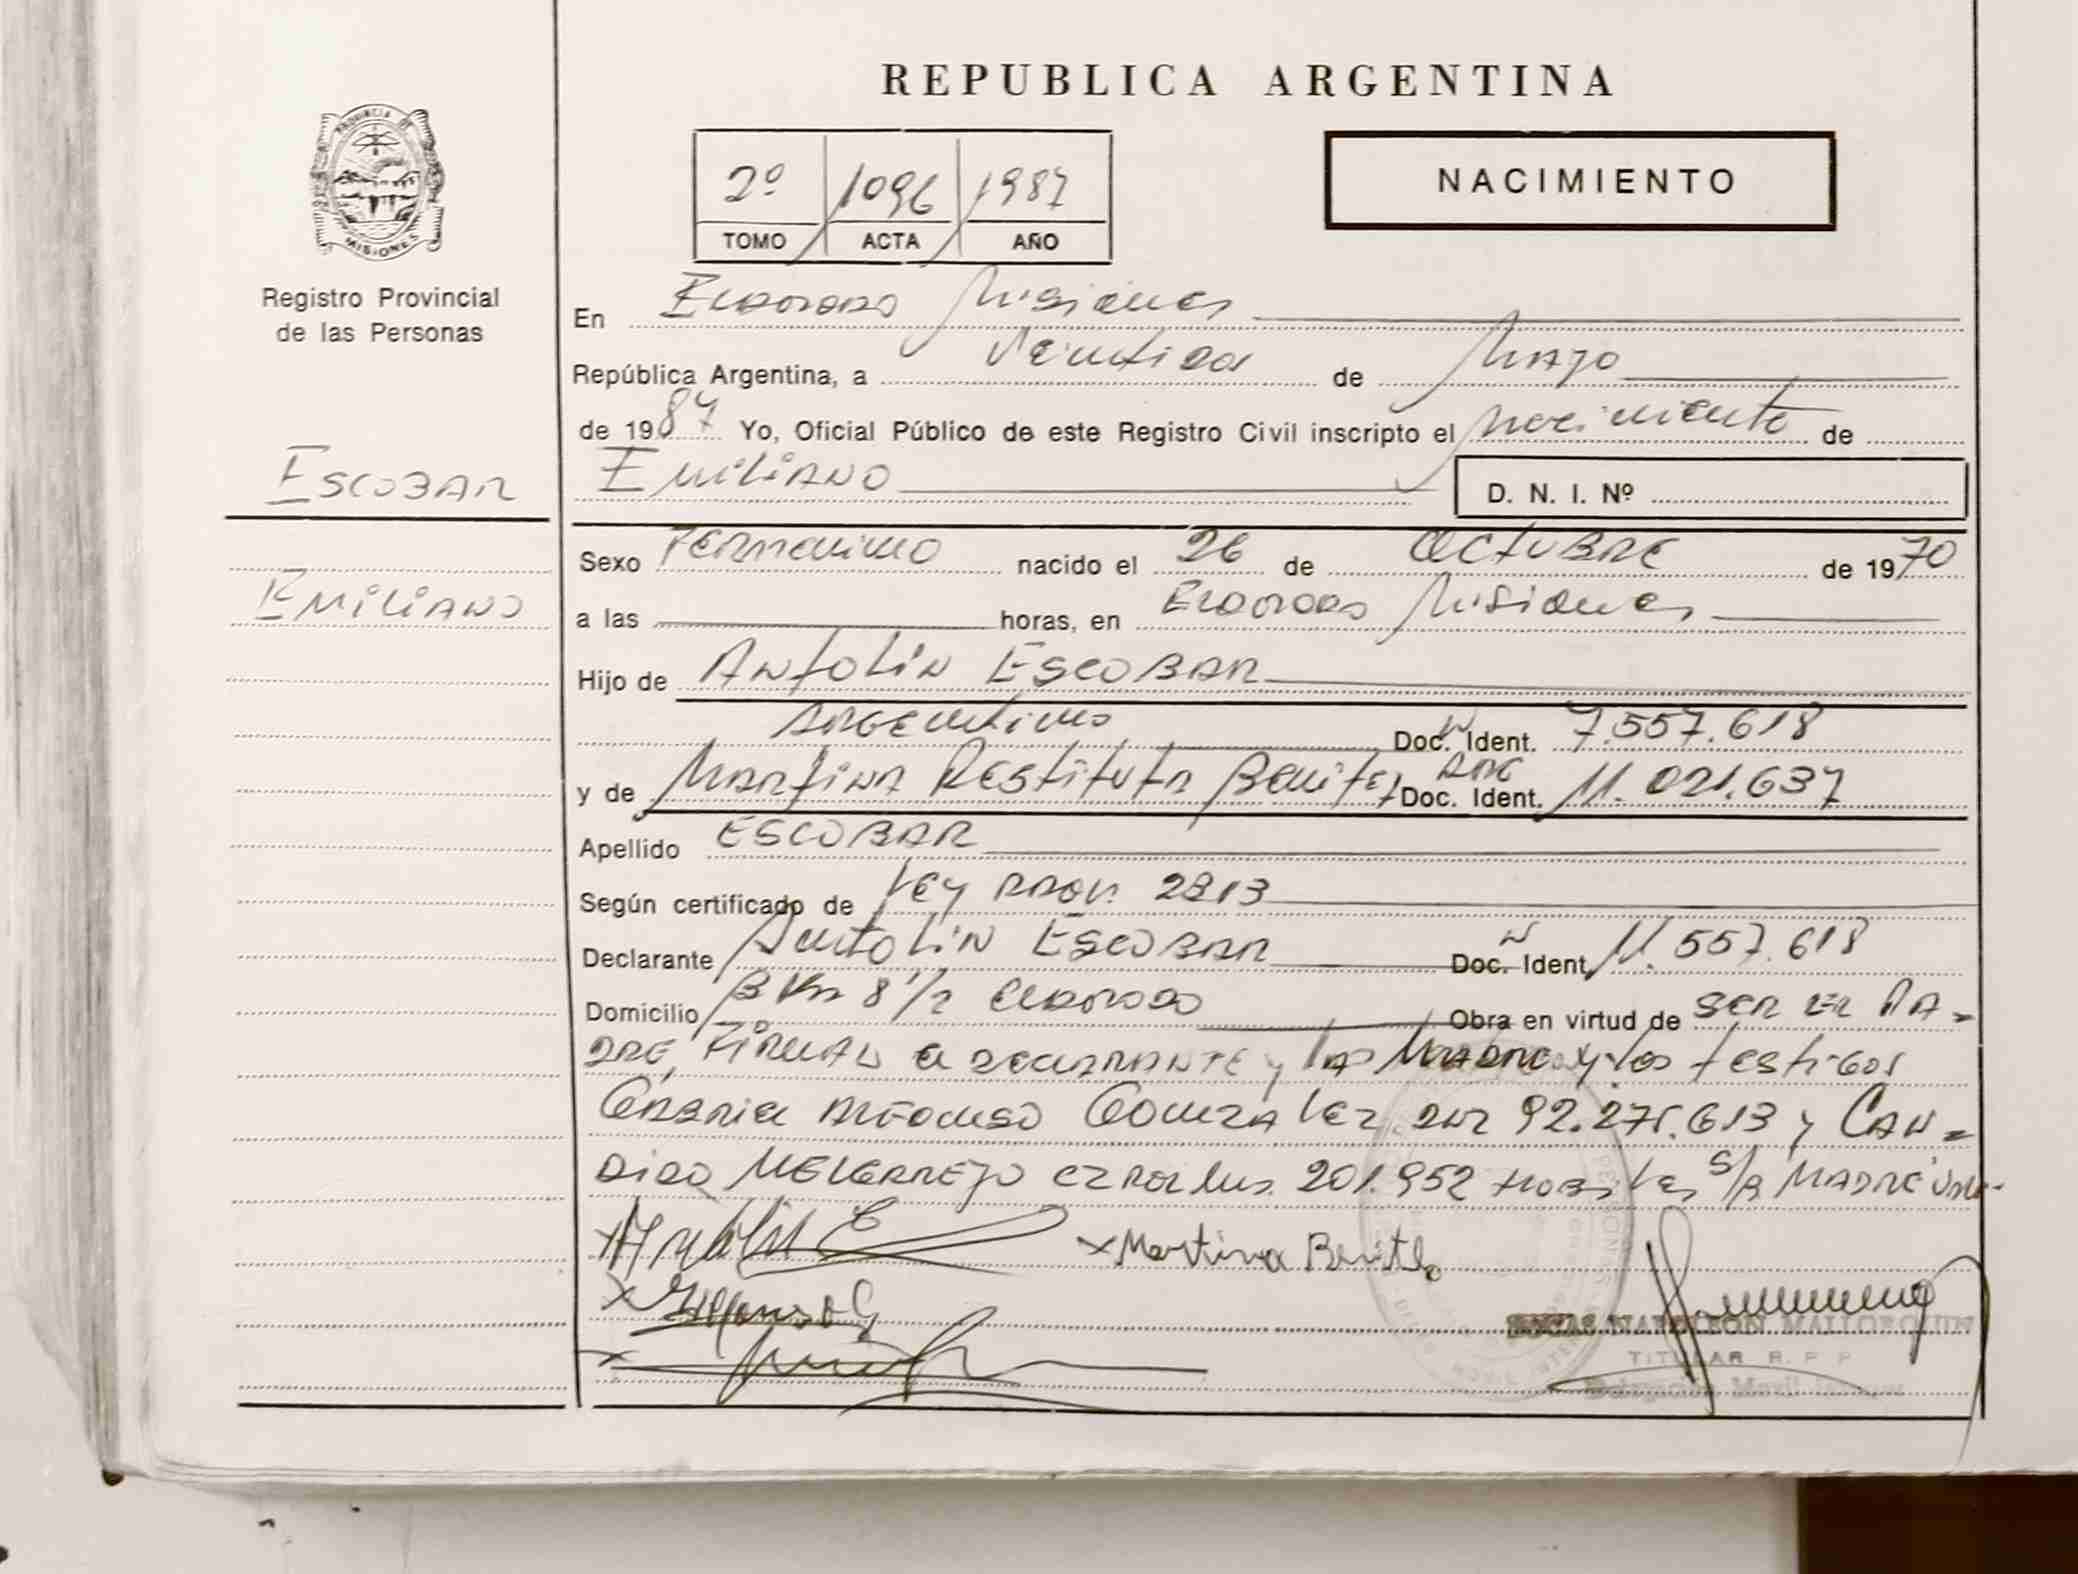 REPUBLICA ARGENTINA
PROVINCIA DE
MISIONES
Registro Provincial
de las Personas
2º 1096 1987
TOMO ACTA AÑO
NACIMIENTO
En Eldorado Misiones
República Argentina, a Veintidos de Mayo
de 1987 Yo, Oficial Público de este Registro Civil inscripto el nacimiento de
Escobar
Emiliano
D. N. I. Nº
Emiliano
Sexo Femenino nacido el 26 de Octubre de 1970
a las horas, en Eldorado Misiones
Hijo de Antolin Escobar
Argentino Doc. Ident. 7.557.618
y de Martina Restituta Benitez Doc. Ident. 11.021.637
Apellido Escobar
Según certificado de Ley Prov. 2813
Declarante Antolin Escobar Doc. Ident. 11.557.618
Domicilio Km 8 1/2 Eldorado Obra en virtud de ser el pa=
dre, Firman el declarante y la Madre y los testigos
Alfonso Gonzalez 92.275.613 y Can=
dido Melgarejo 201.952 s/r Madre
x Martina Benitez
x Alfonso G
NAPOLEON MALLORQUIN
TITULAR R. P. P.